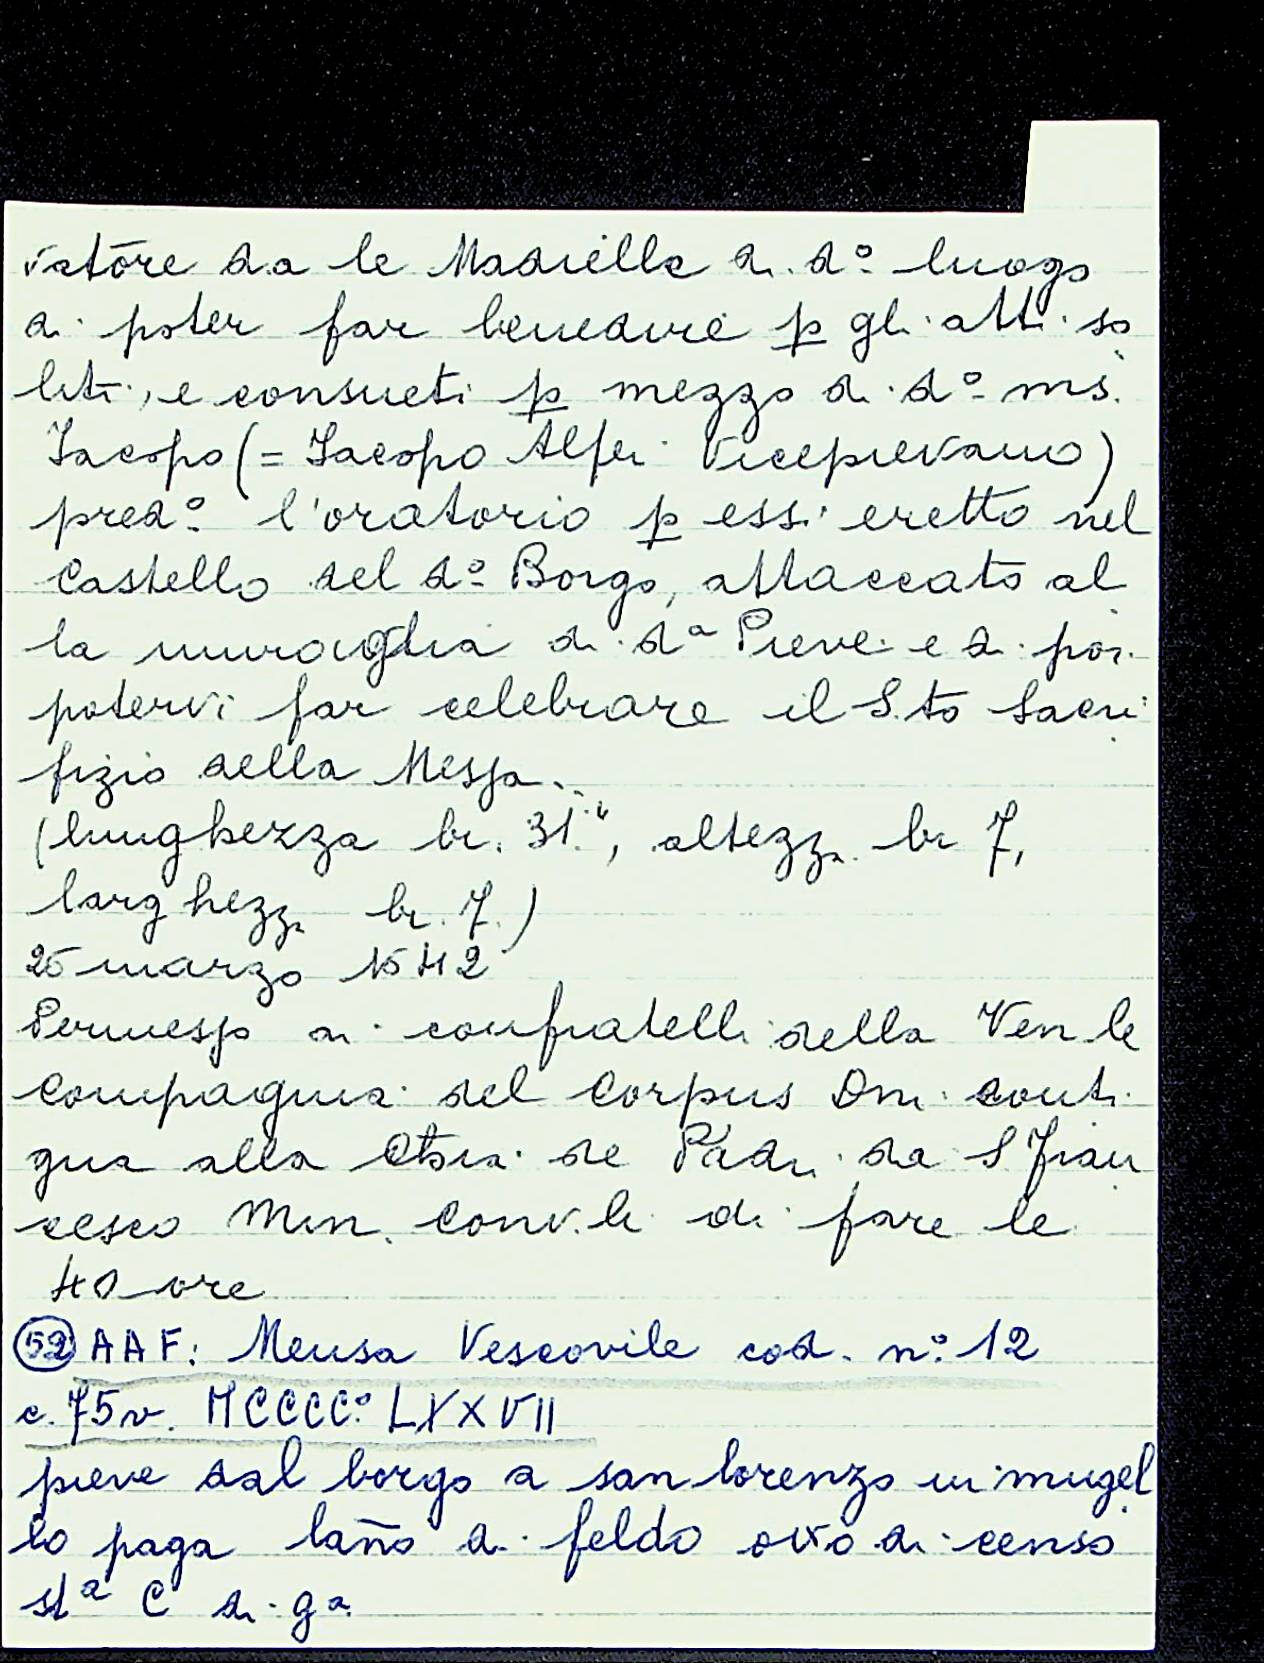 vatōre da le Madielle di dº luogo
di poter far benedire p gli atti so
liti, e consueti p mezzo di dº ms.
Iacopo (= Iacopo Alfei Vicepievano)
predº l'oratorio p essi eretto nel
Castello del dº Borgo, attaccato al
la muraglia di dª Pieve e di poi
potervi far celebrare il S.to Sacri
fizio della Messa..
(lunghezza br. 31, altezz. br 7,
larghezz br. 7.)
marzo
Permesso ai confratelli della Ven le
Compagnia del Corpus Dni conti
gua alla de Padri da S Fran
cesco Min. Conv.li di fare le
40 ore
52 AAF: Mensa Vescovile cod. nº 12
c. 75v. MCCCCº LXXVII
pieve dal borgo a san lorenzo in mugel
lo paga lañº di feldo di censo
stª C di gª